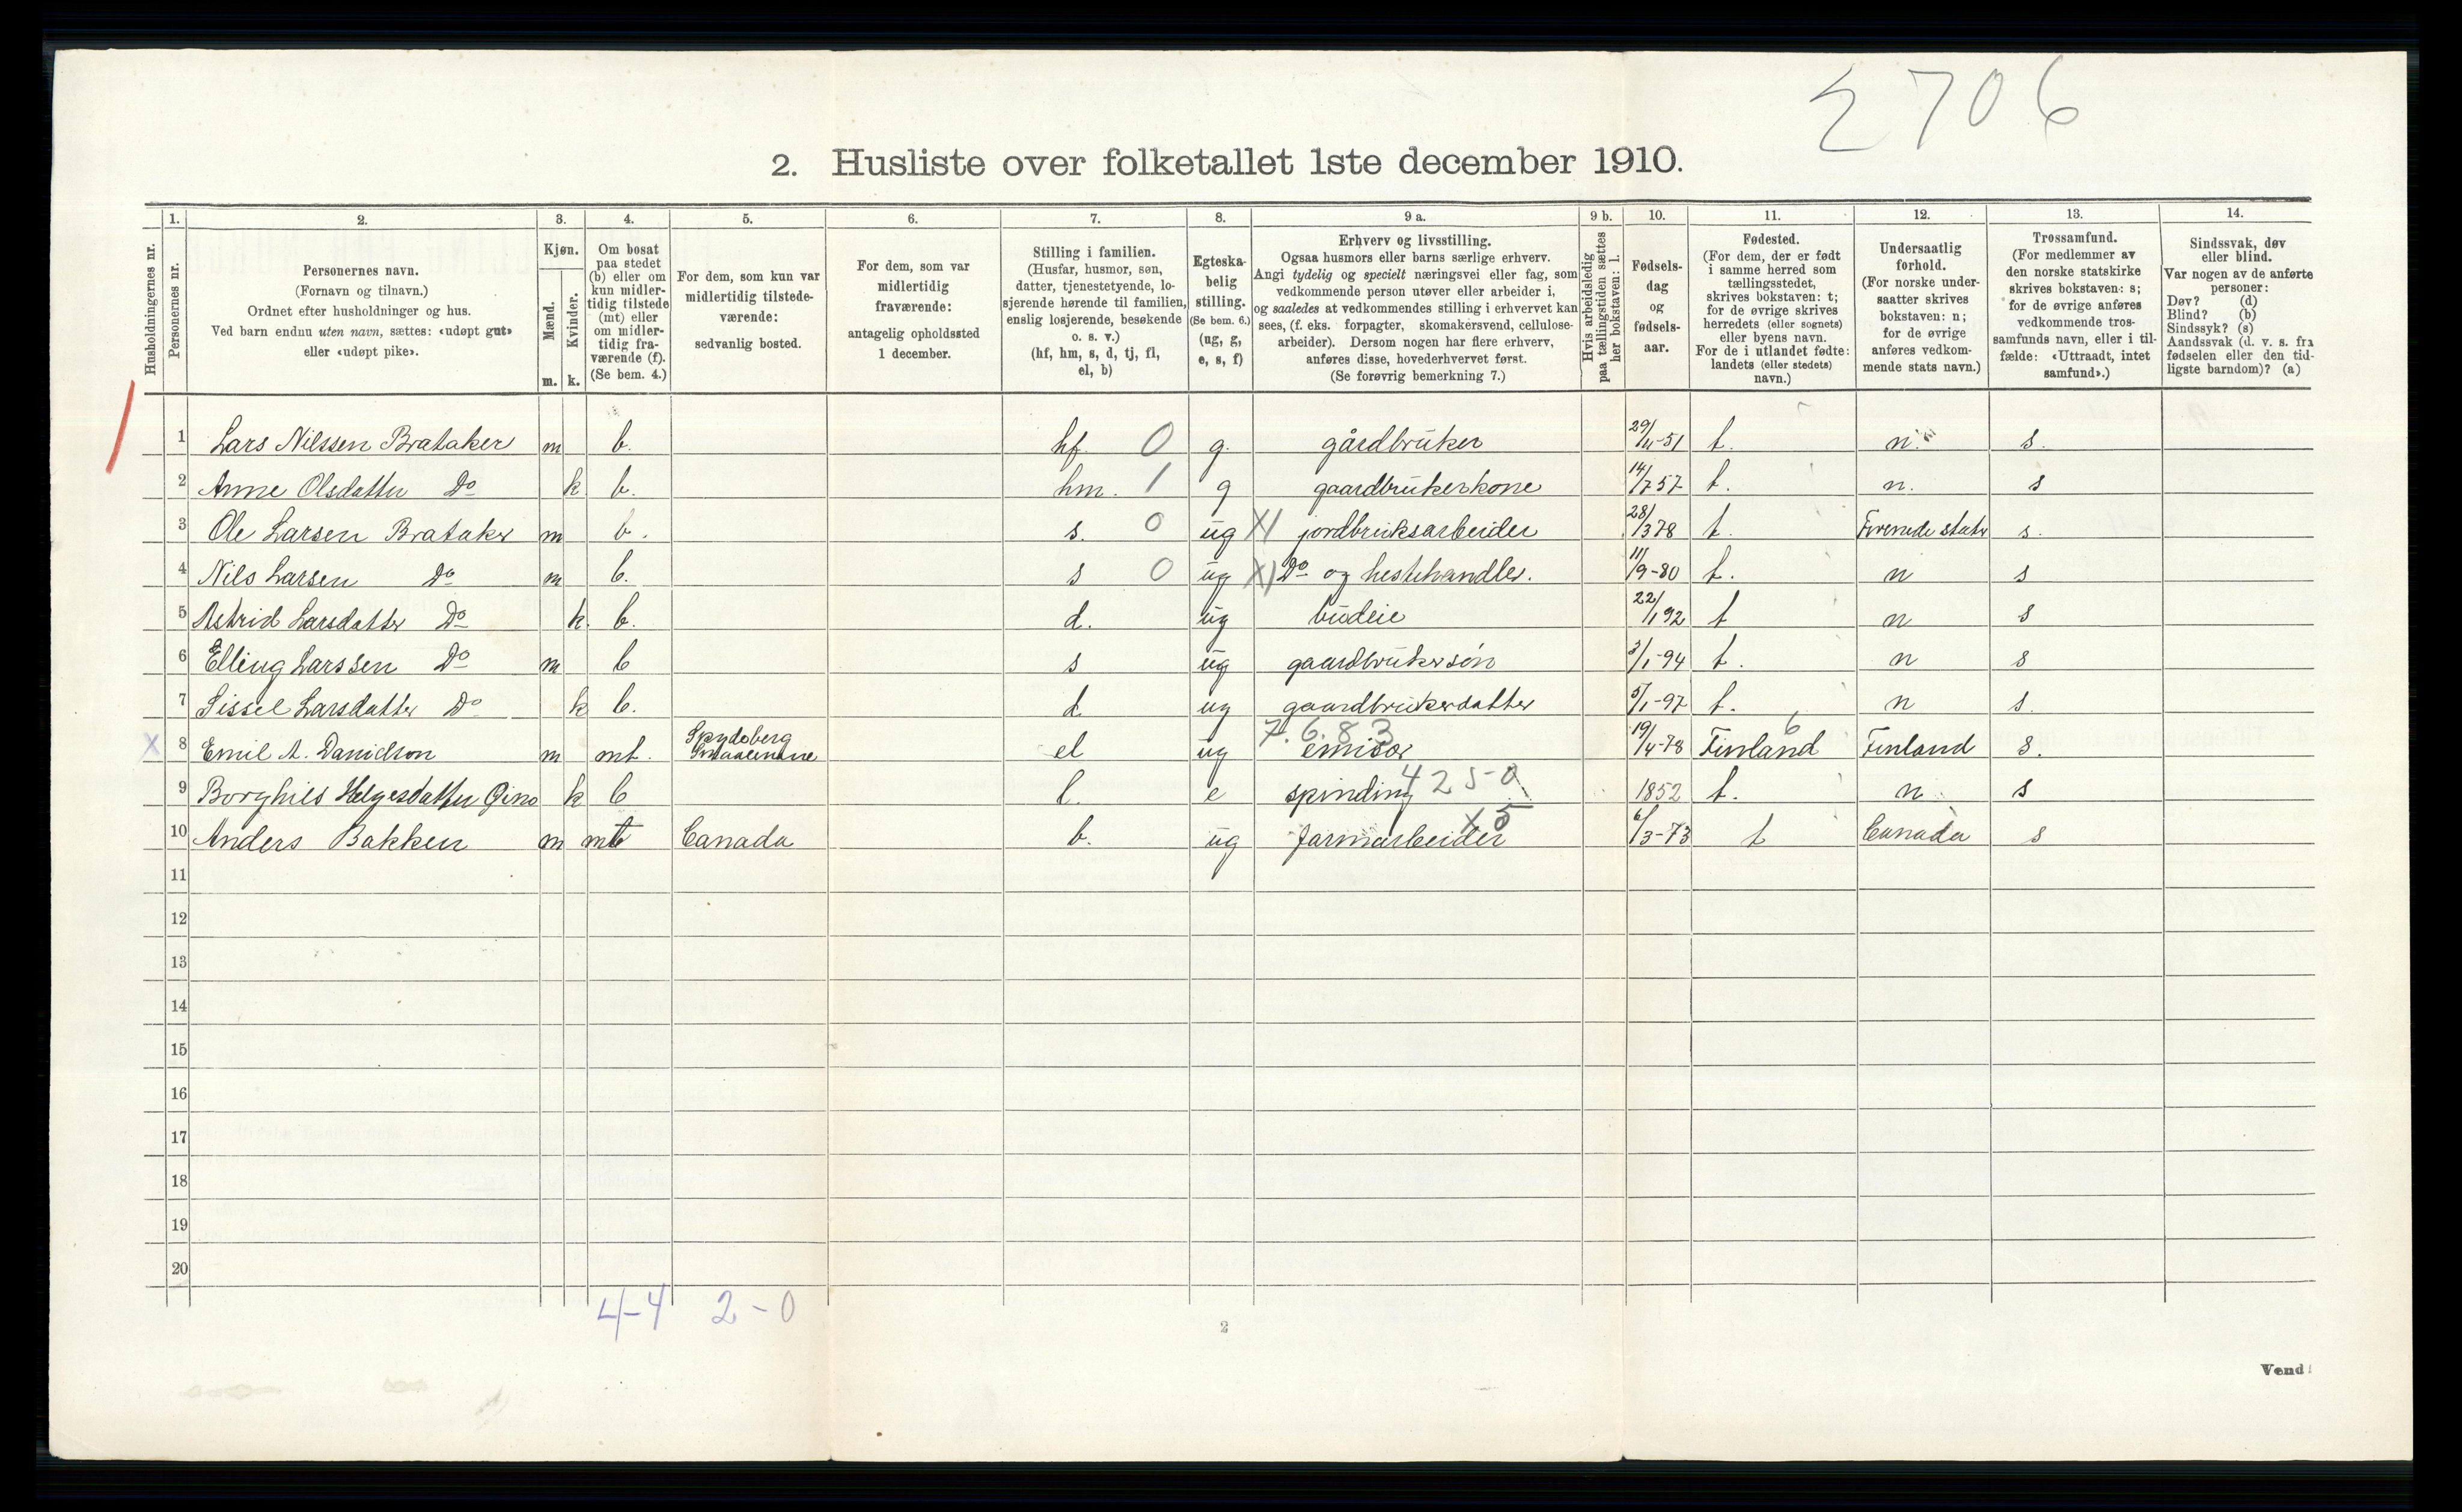 2706
2. Husliste over folketallet 1ste december 1910.
Husholdningernes nr.
1. Personernes nr.
2. Personernes navn.
(Fornavn og tilnavn.)
Ordnet efter husholdninger og hus.
Ved barn endnu uten navn, sættes: «udøpt gut»
eller «udøpt pike».
3. Kjøn.
Mænd. m.
Kvinder. k.
4. Om bosat
paa stedet
(b) eller om
kun midler-
tidig tilstede
(mt) eller
om midler-
tidig fra-
værende (f).
(Se bem. 4.)
5. For dem, som kun var
midlertidig tilstede-
værende:
sedvanlig bosted.
6. For dem, som var
midlertidig
fraværende:
antagelig opholdssted
1 december.
7. Stilling i familien.
(Husfar, husmor, søn,
datter, tjenestetyende, lo-
sjerende hørende til familien,
enslig losjerende, besøkende
o. s. v.)
(hf, hm, s, d, tj, fl,
el, b)
8. Egteska-
belig
stilling.
(Se bem. 6.)
(ug, g,
e, s, f)
9 a. Erhverv og livsstilling.
Ogsaa husmors eller barns særlige erhverv.
Angi tydelig og specielt næringsvei eller fag, som
vedkommende person utøver eller arbeider i,
og saaledes at vedkommendes stilling i erhvervet kan
sees, (f. eks. forpagter, skomakersvend, cellulose-
arbeider). Dersom nogen har flere erhverv,
anføres disse, hovederhvervet først.
(Se forøvrig bemerkning 7.)
9 b. Hvis arbeidsledig
paa tællingstiden sættes
her bokstaven: l.
10. Fødsels-
dag
og
fødsels-
aar.
11. Fødested.
(For dem, der er født
i samme herred som
tællingsstedet,
skrives bokstaven: t;
for de øvrige skrives
herredets (eller sognets)
eller byens navn.
For de i utlandet fødte:
landets (eller stedets)
navn.)
12. Undersaatlig
forhold.
(For norske under-
saatter skrives
bokstaven: n;
for de øvrige
anføres vedkom-
mende stats navn.)
13. Trossamfund.
(For medlemmer av
den norske statskirke
skrives bokstaven: s;
for de øvrige anføres
vedkommende tros-
samfunds navn, eller i til-
fælde: «Uttraadt, intet
samfund».)
14. Sindssvak, døv
eller blind.
Var nogen av de anførte
personer:
Døv? (d)
Blind? (b)
Sindssyk? (s)
Aandssvak (d. v. s. fra
fødselen eller den tid-
ligste barndom)? (a)
1 Lars Nilssen Brataker m b. hf. 0 g. gårdbruker 29/4-51 t. n. s.
2 Anne Olsdatter Do k b. hm. 1 g gaardbrukerkone 14/7 57 t. n. s
3 Ole Larsen Brataker m b. s. 0 ug X1 jordbruksarbeider 28/3 78 t. Forenede stater s.
4 Nils Larsen Do m b. s 0 ug X1 Do og hestehandler. 11/9-80 t. n s
5 Astrid Larsdatter Do k. b. d. ug budeie 22/1 92 t n s
6 Elling Larssen Do m b s ug gaardbrukersøn 3/1-94 t. n s
7 Sissel Larsdatter Do k b. d ug gaardbrukerdatter 5/1-97 t. n s.
X 8 Emil A. Danielson m mt. Spydeberg Smaalenene el ug 7.6.83 emisær 19/4-78 Finland 6 Finland s.
9 Borghild Helgesdatter k b l. e spinding 425-0 1852 t. n s
10 Anders Bakken m mt Canada b. ug farmarbeider X5 6/3-73 t Canada s
11
12
13
14
15
16
17
18
19
20
4-4 2-0
2
Vend!